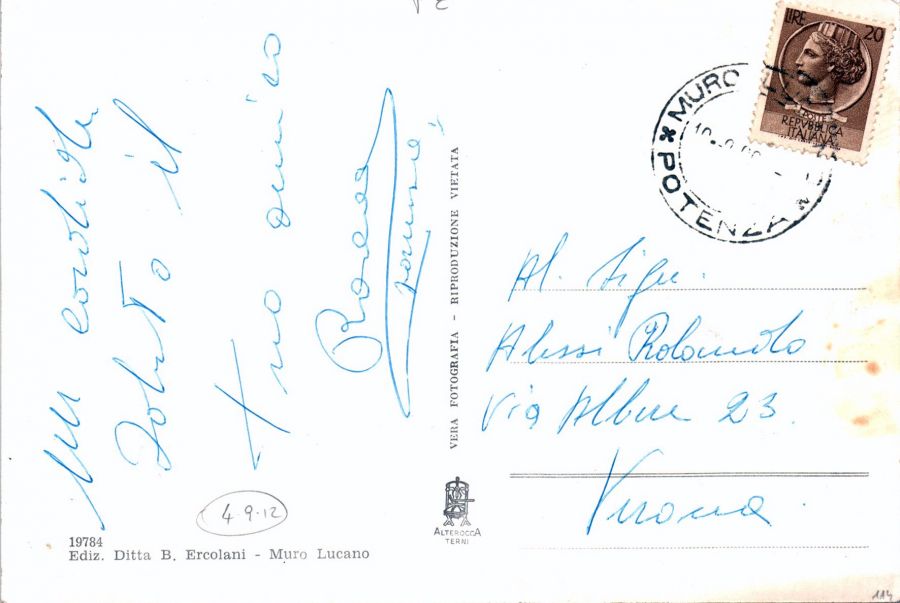 Un cordiale
saluto il
tuo amico
4.9.12
19784
Ediz. Ditta B. Ercolani - Muro Lucano
VERA FOTOGRAFIA - RIPRODUZIONE VIETATA
ALTEROCCA
TERNI
LIRE 20
POSTE
REPVBBLICA
ITALIANA
MURO
POTENZA
Al. Sigr.
Alessi Rolando
Via Albere 23.
Verona
114